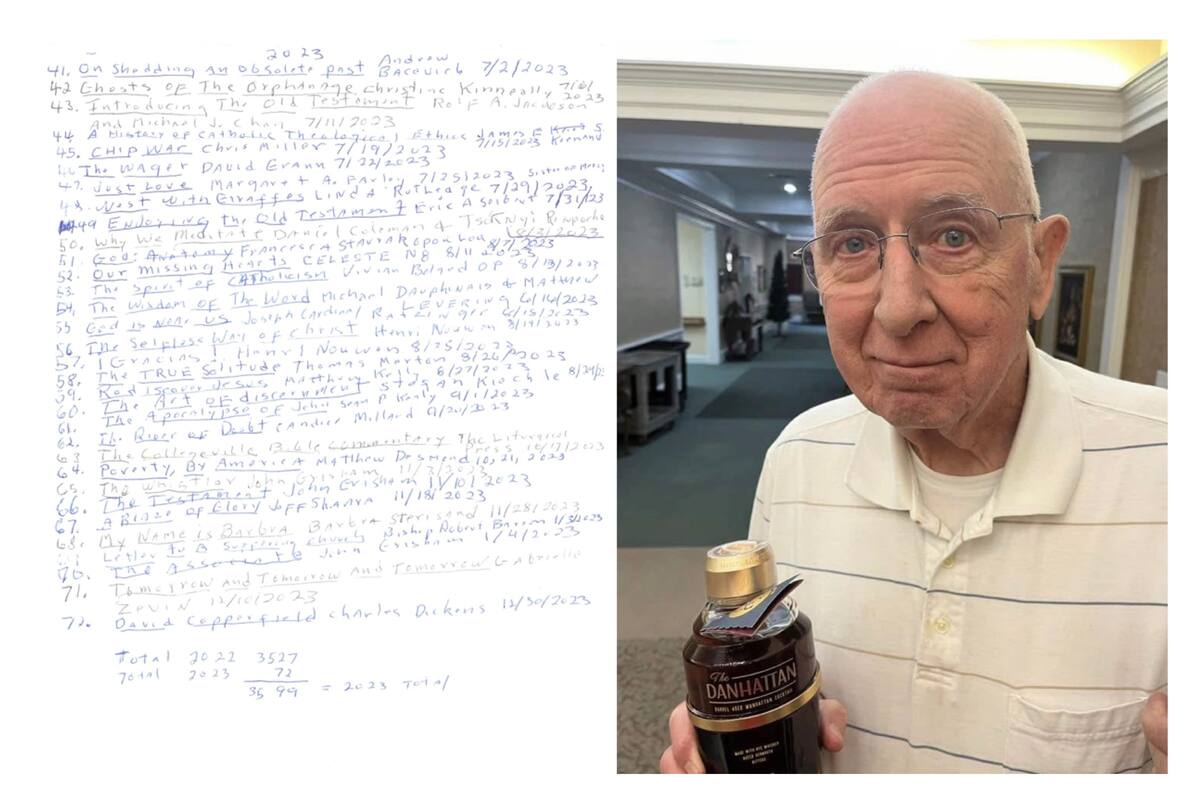 2023
41. On Shedding An Obsolete past Andrew
Bacevich 7/2/2023
42 Ghosts of The Orphanage Christine Kenneally 7/6/
2023
43. Introducing The Old Testament Rolf A. Jacobson
And Michael J. Chan 7/11/2023
44 A History of Catholic Theological Ethics James F
7/15/2023 Keenan
45. CHIP WAR Chris Miller 7/19/2023
46 The WAGER DAVID Grann 7/22/2023
47. Just Love Margaret A. Farley 7/25/2023
48. West With Giraffes LINDA Rutledge 7/29/2023
49 Enduring the Old Testament Eric A Seibert 7/31/23
50. Why We Meditate Daniel Goleman & Tsoknyi Rinpoche
8/3/2023
51. God: Anatomy Francesca Stavrakopoulou 8/7/2023
52. Our missing Hearts CELESTE NG 8/11 2023
53. The Spirit of CAtholicism Vivian Boland OP 8/13/2023
54. The Wisdom of The Word Michael Dauphinais & Matthew
LEVERING 6/14/2023
55 God is Near US Joseph Cardinal Ratzinger
56. The Selfless Way of Christ Henri Nouwen 8/19/2023
57. Gracias! Henri Nouwen 8/25/2023
58. The TRUE Solitude Thomas Merton 8/26/2023
59. Rediscover Jesus Matthew Kelly 8/27/2023
60. The Art of discernment Stefan Kiechle 8/29/23
61. The Apocalypse of John Sean P Kealy 9/1/2023
62. The River of Doubt Candice Millard 9/20/2023
63 The Collegeville Bible Commentary The Liturgical
Press 10/17/2023
64. Poverty, By America Matthew Desmond 10, 21, 2023
65. The Whistler John Grisham 11/3/2023
66. The Testament John Grisham 11/10/2023
67. A Blaze of Glory Jeff Shaara 11/18/2023
68. My Name is Barbra Barbra Sterisand 11/28/2023
Letter to A Suffering Church Bishop Robert Barron 1/3/2023
70. The Associate John Grisham 1/4/2023
71. Tomorrow And Tomorrow And Tomorrow Gabrielle
Zevin 12/10/2023
72. David Copperfield Charles Dickens 12/30/2023
Total 2022 3527
Total 2023 72
35 99 = 2023 Total
The
DANHATTAN
BARREL AGED MANHATTAN COCKTAIL
MADE WITH RYE WHISKEY
SWEET VERMOUTH
BITTERS